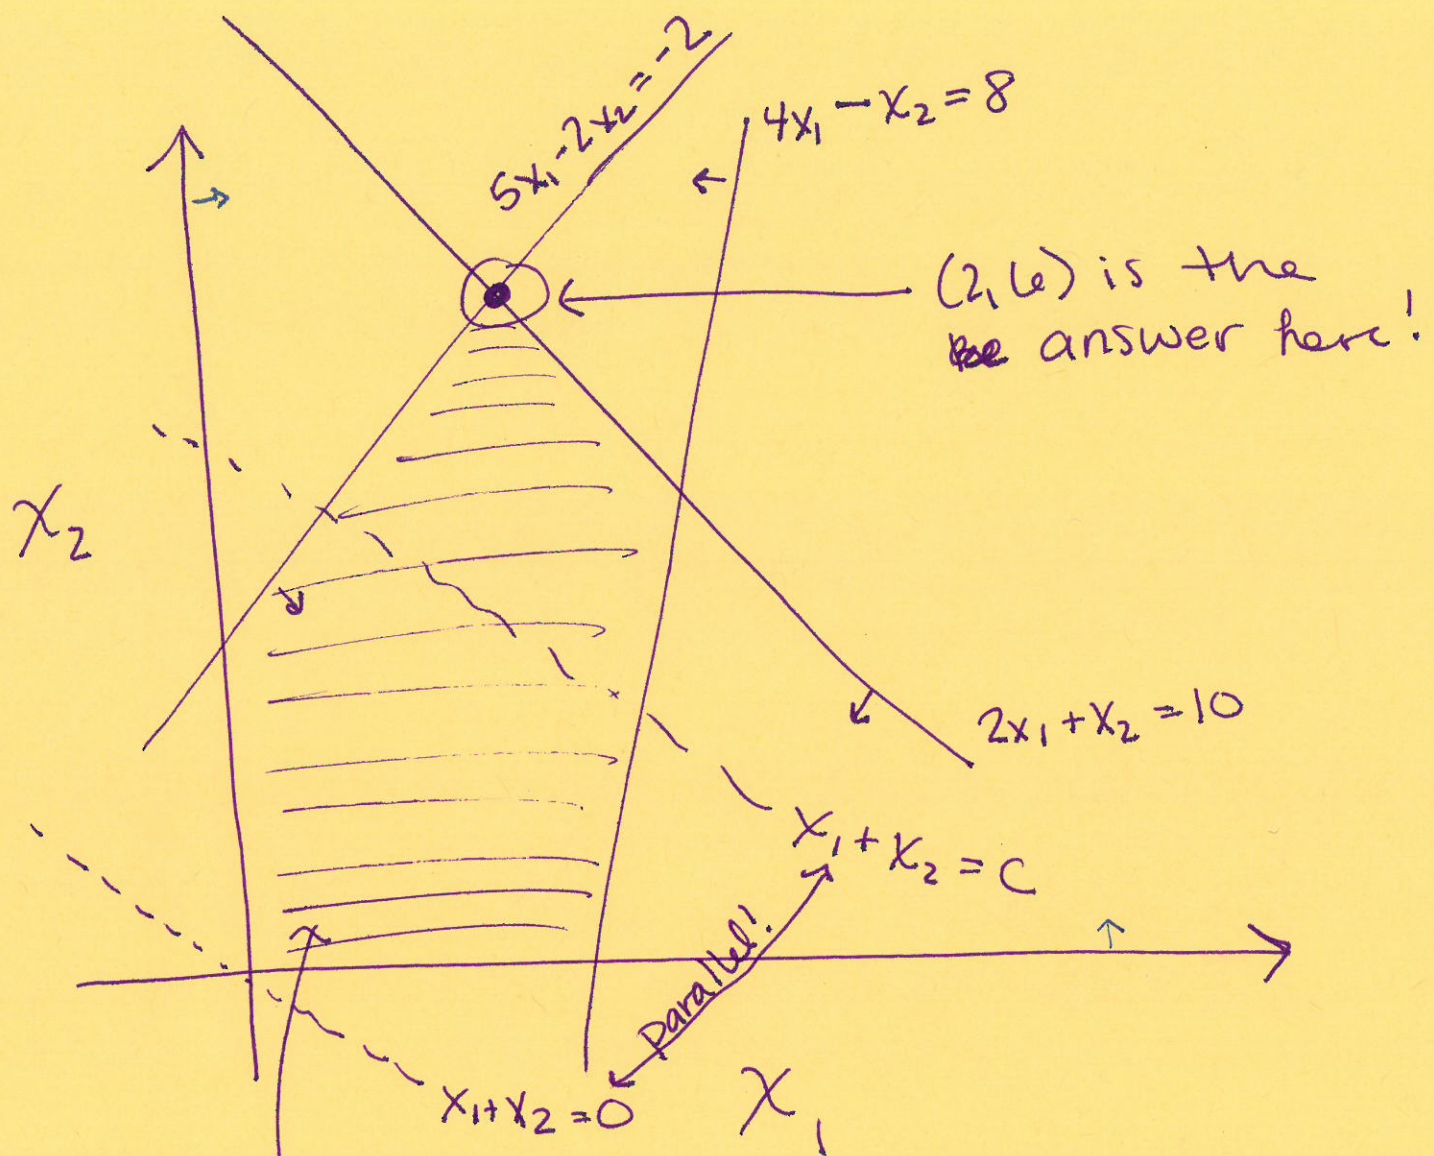 5x₁-2x₂=-2
4x₁-x₂=8
(2,6) is the
answer here!
x₂
2x₁+x₂=10
x₁+x₂=c
parallel!
x₁+x₂=0
x₁